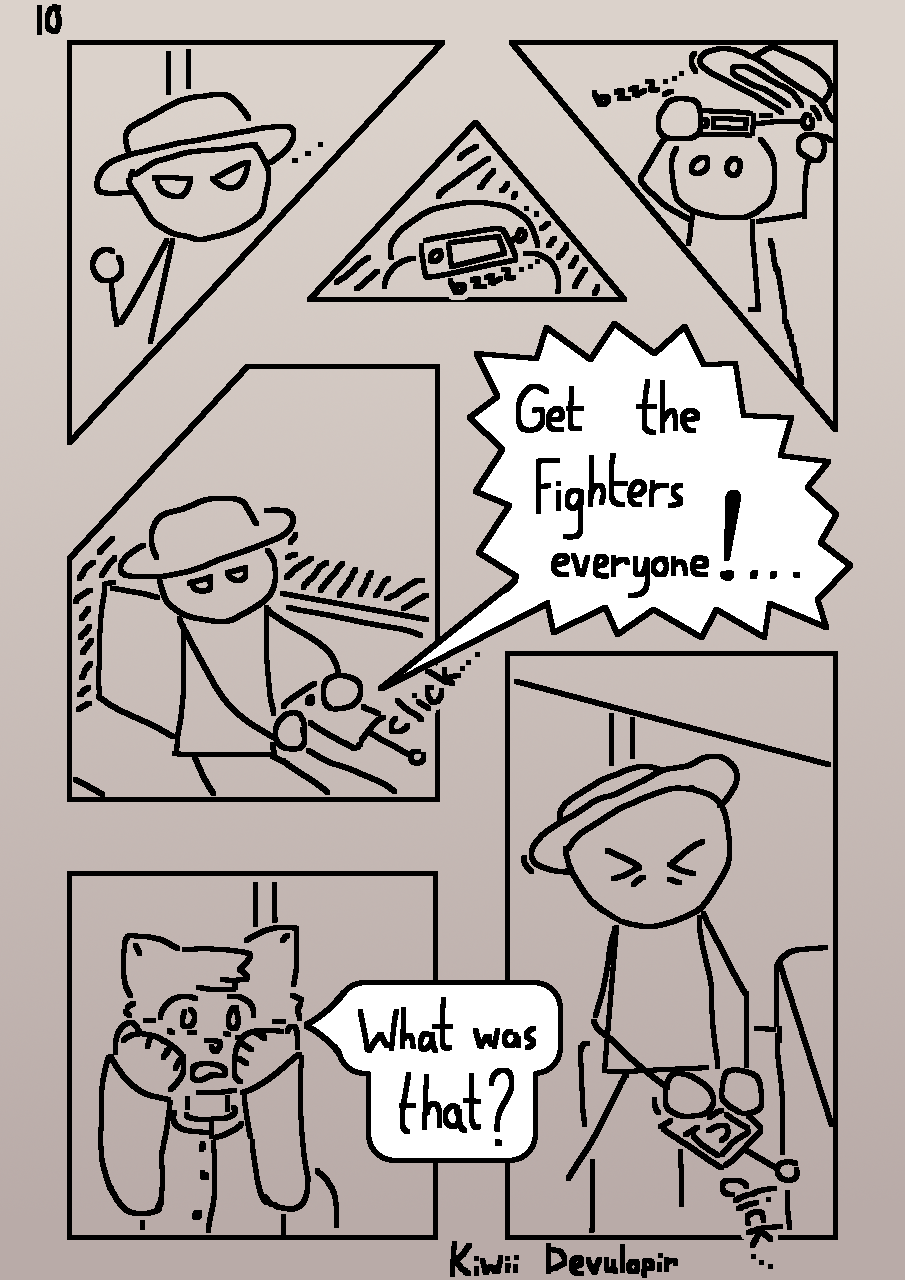 10
bzzz...
bzzz...
Get the
Fighters
everyone!....
click...
What was
that?
click...
Kiwii Devulapir